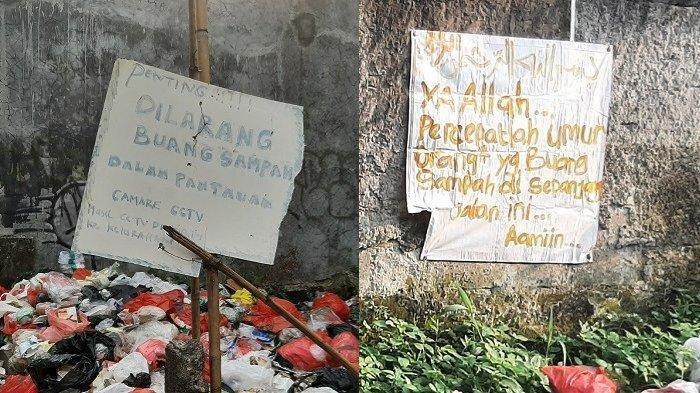 PENTING...!!!!
DILARANG
BUANG SAMPAH
DALAM PANTAUAN
CAMARE CCTV
HASIL CCTV
KE
YA Allah...
Percepatlah umur
orang² yg Buang
Sampah di sepanjang
Jalan ini...
Aamiin...